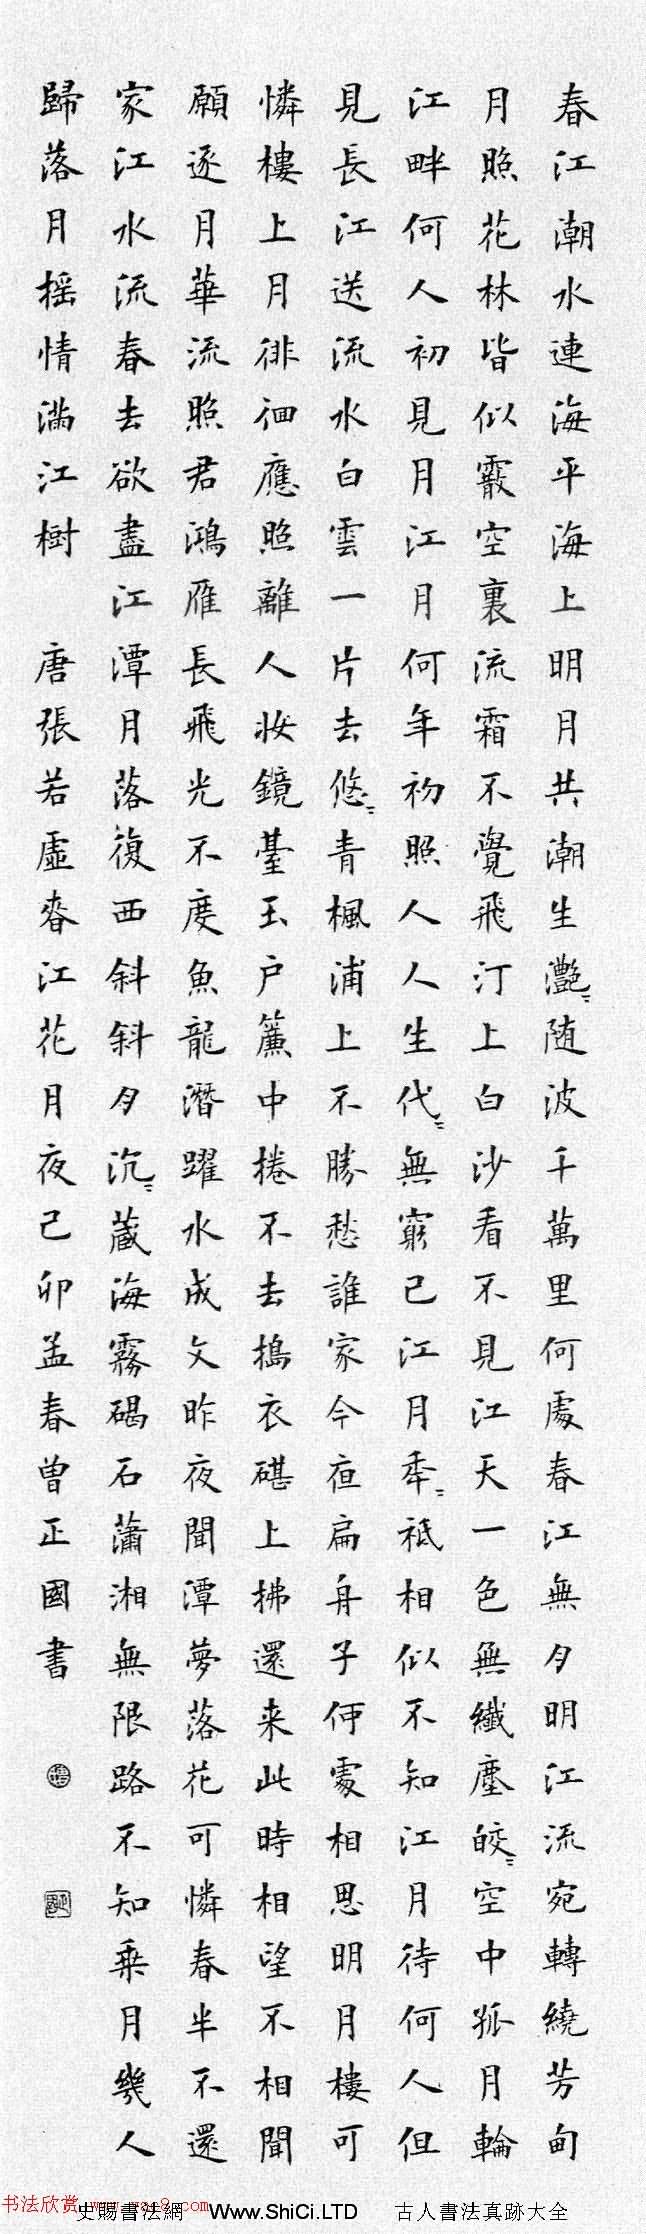 春江潮水連海平海上明月共潮生灧〻随波千萬里何處春江無月明江流宛轉繞芳甸
月照花林皆似霰空裏流霜不覺飛汀上白沙看不見江天一色無纖塵皎〻空中孤月輪
江畔何人初見月江月何年初照人人生代〻無窮已江月年〻祗相似不知江月待何人但
見長江送流水白雲一片去悠〻青楓浦上不勝愁誰家今夜扁舟子何處相思明月樓可
憐樓上月徘徊應照離人妝鏡臺玉戶簾中捲不去搗衣碪上拂還来此時相望不相聞
願逐月華流照君鴻雁長飛光不度魚龍潛躍水成文昨夜聞潭夢落花可憐春半不還
家江水流春去欲盡江潭月落復西斜斜月沉〻蔵海霧碣石蕭湘無限路不知乗月幾人
歸落月揺情滿江樹 唐張若虛春江花月夜己卯孟春曾正國書
书法欣赏 www.yac8.com
史賜書法網 Www.ShiCi.LTD 古人書法真跡大全